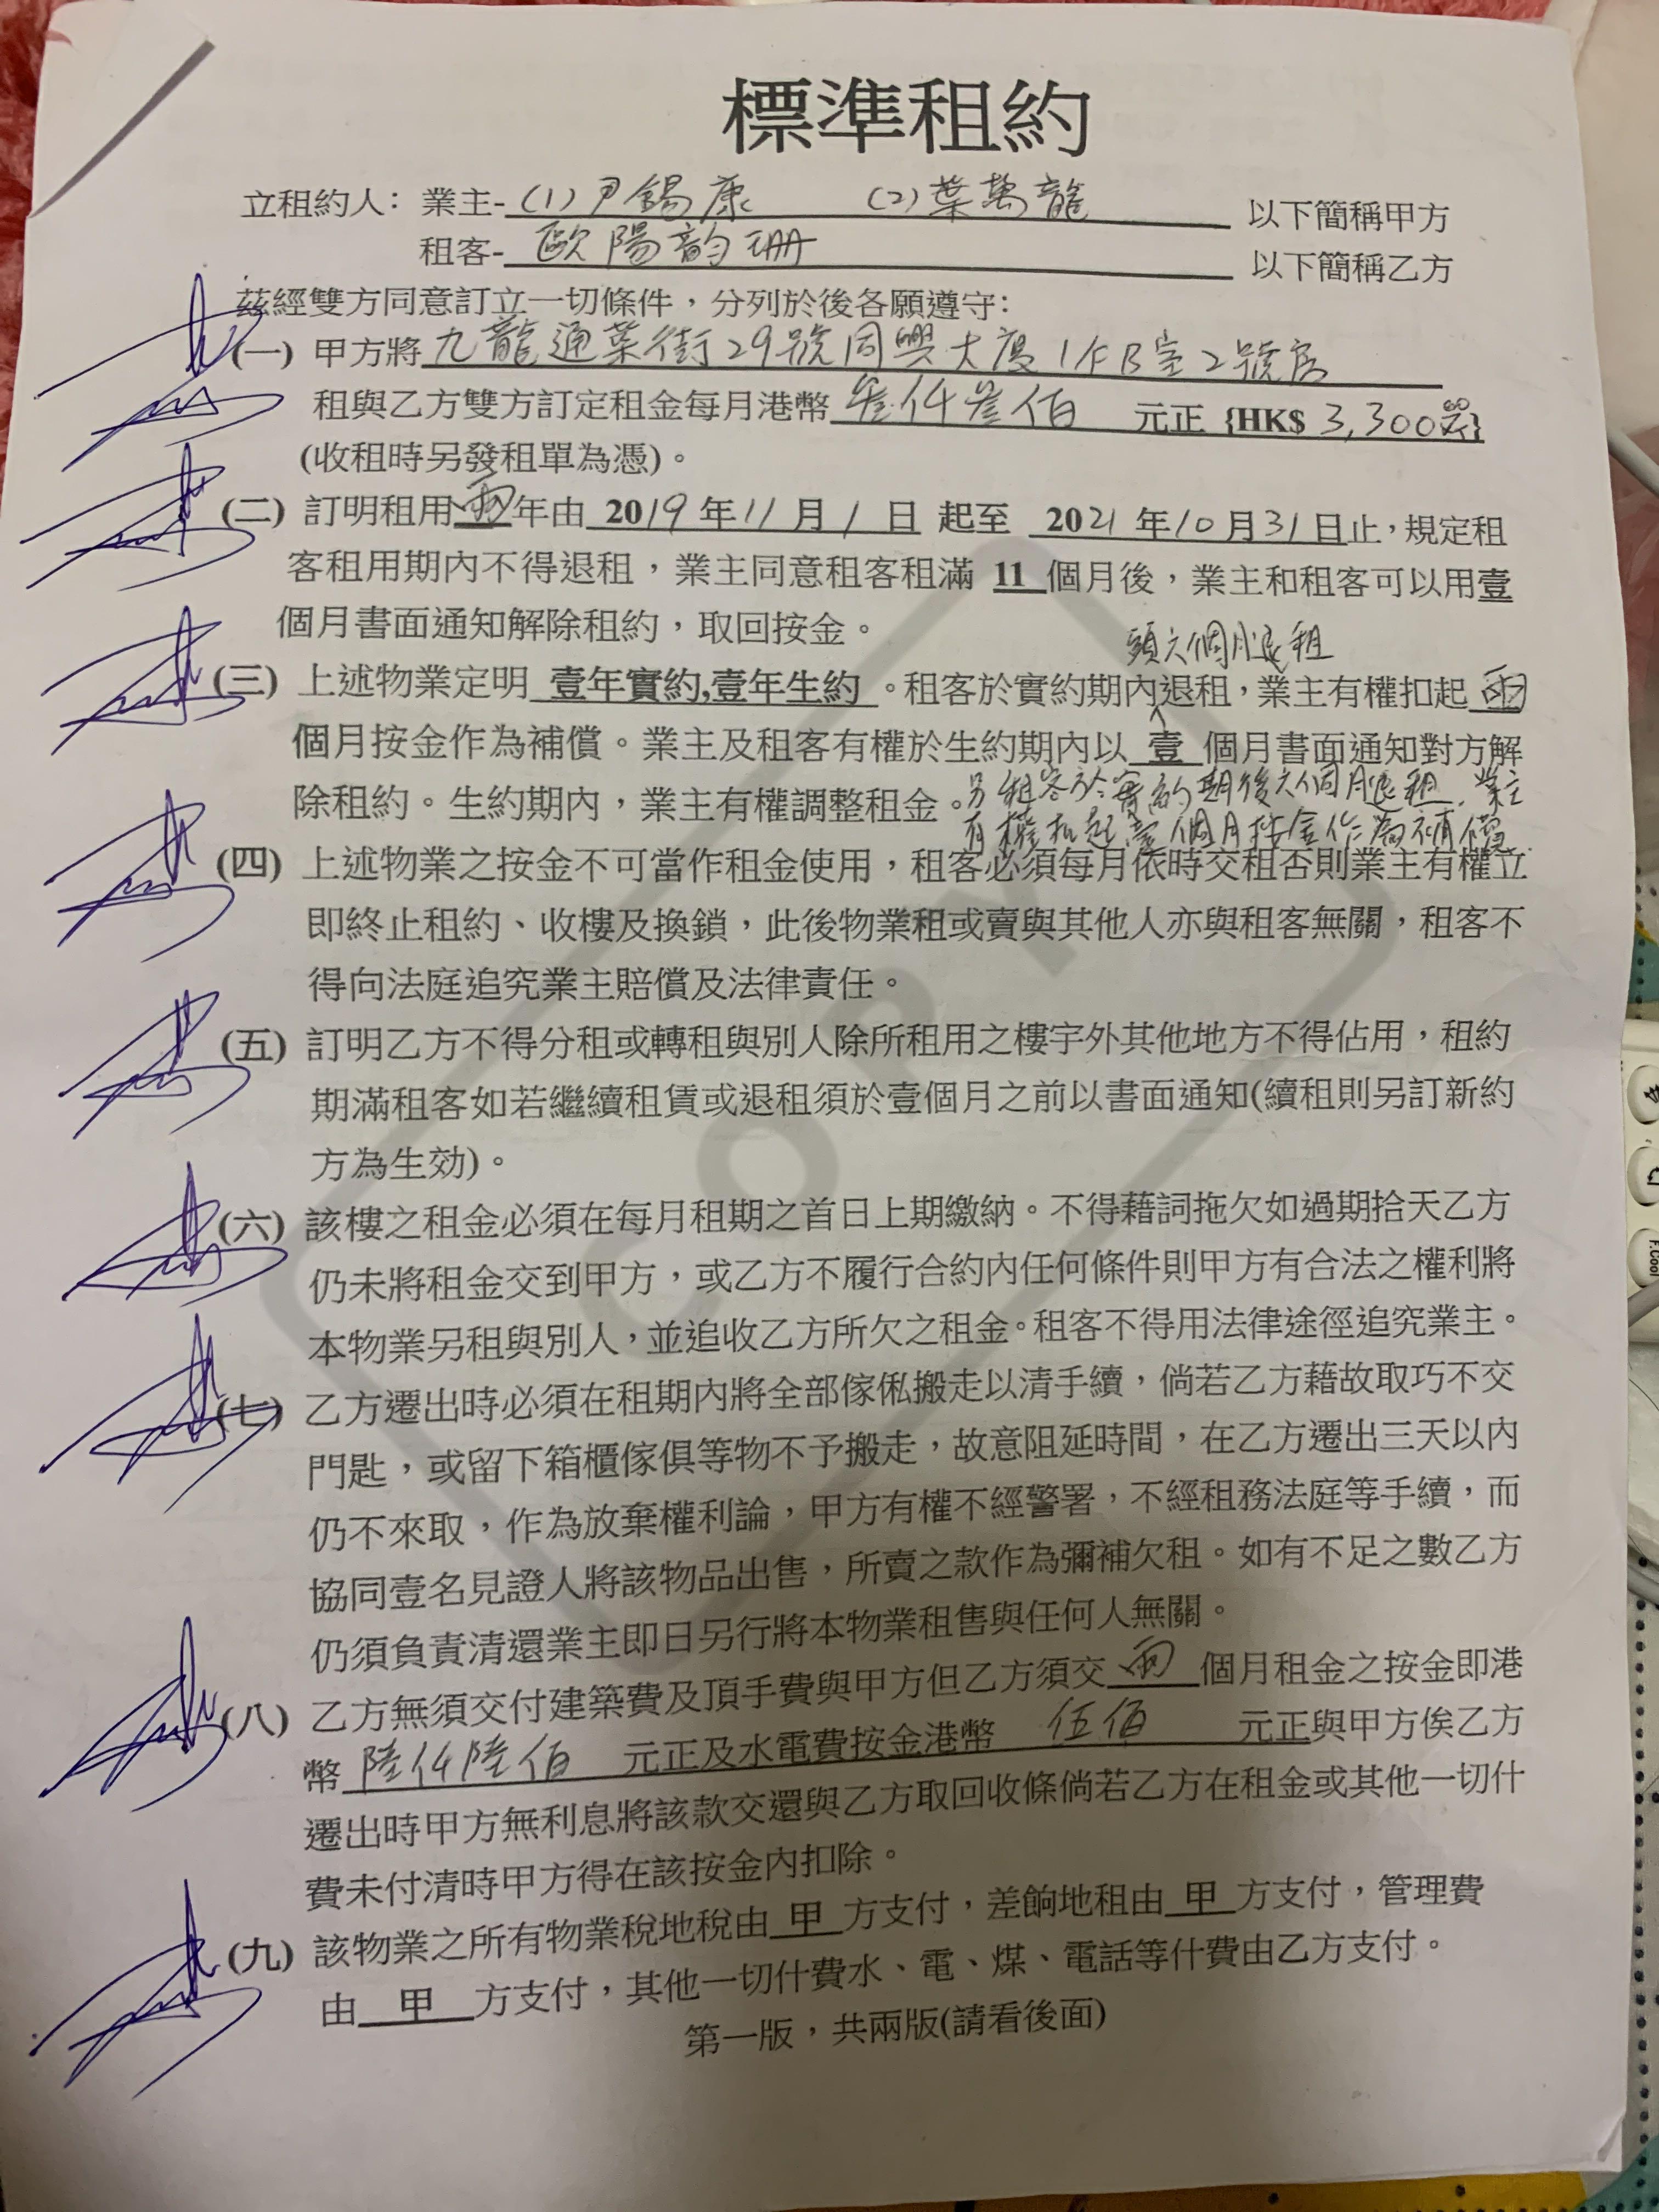 標準租約
立租約人：業主-(1)尹錫康 (2)葉萬龍 以下簡稱甲方
租客-歐陽韵珊 以下簡稱乙方
茲經雙方同意訂立一切條件，分列於後各願遵守：
(一) 甲方將九龍通菜街29號同興大廈1/F B室2號房
租與乙方雙方訂定租金每月港幣叁仟叁佰 元正 {HK$ 3,300.00}
(收租時另發租單為憑)。
(二) 訂明租用兩年由 2019年11月1日 起至 2021年10月31日止，規定租
客租用期內不得退租，業主同意租客租滿 11 個月後，業主和租客可以用壹
個月書面通知解除租約，取回按金。
頭六個月退租
(三) 上述物業定明 壹年實約,壹年生約 。租客於實約期內退租，業主有權扣起兩
個月按金作為補償。業主及租客有權於生約期內以 壹 個月書面通知對方解
除租約。生約期內，業主有權調整租金。另租客於實約期後六個月退租，業主
有權扣起壹個月按金作為補償。
(四) 上述物業之按金不可當作租金使用，租客必須每月依時交租否則業主有權立
即終止租約、收樓及換鎖，此後物業租或賣與其他人亦與租客無關，租客不
得向法庭追究業主賠償及法律責任。
(五) 訂明乙方不得分租或轉租與別人除所租用之樓宇外其他地方不得佔用，租約
期滿租客如若繼續租賃或退租須於壹個月之前以書面通知(續租則另訂新約
方為生効)。
(六) 該樓之租金必須在每月租期之首日上期繳納。不得藉詞拖欠如過期拾天乙方
仍未將租金交到甲方，或乙方不履行合約內任何條件則甲方有合法之權利將
本物業另租與別人，並追收乙方所欠之租金。租客不得用法律途徑追究業主。
(七) 乙方遷出時必須在租期內將全部傢俬搬走以清手續，倘若乙方藉故取巧不交
門匙，或留下箱櫃傢俱等物不予搬走，故意阻延時間，在乙方遷出三天以內
仍不來取，作為放棄權利論，甲方有權不經警署，不經租務法庭等手續，而
協同壹名見證人將該物品出售，所賣之款作為彌補欠租。如有不足之數乙方
仍須負責清還業主即日另行將本物業租售與任何人無關。
(八) 乙方無須交付建築費及頂手費與甲方但乙方須交 兩 個月租金之按金即港
幣 陸仟陸佰 元正及水電費按金港幣 伍佰 元正與甲方俟乙方
遷出時甲方無利息將該款交還與乙方取回收條倘若乙方在租金或其他一切什
費未付清時甲方得在該按金內扣除。
(九) 該物業之所有物業稅地稅由 甲 方支付，差餉地租由 甲 方支付，管理費
由 甲 方支付，其他一切什費水、電、煤、電話等什費由乙方支付。
第一版，共兩版(請看後面)
COPY
F.Cool